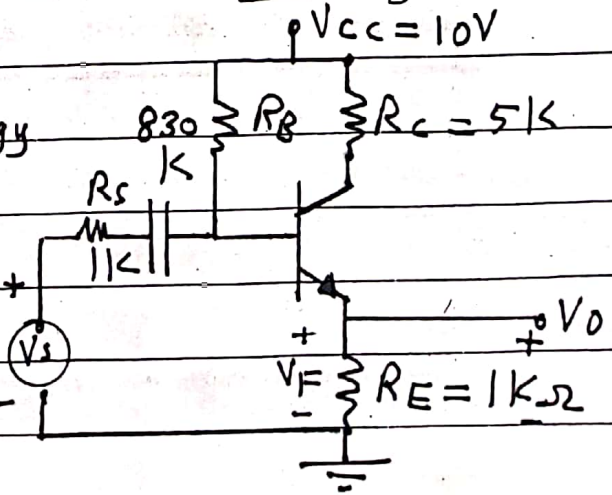 VCC = 10V
gy
830
K
RB
RC = 5K
RS
1K
+
VS
-
+
VF
-
VO
+
RE = 1KΩ